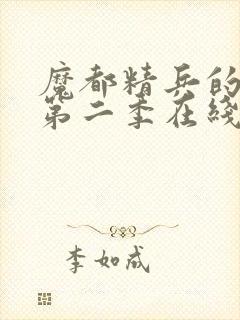 魔都精兵的
第二季在线
李如成